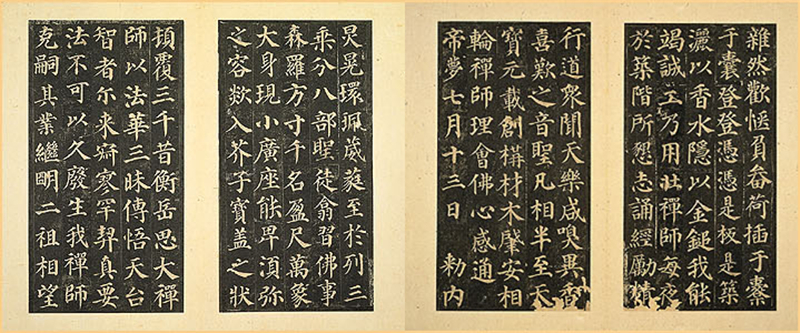 雜然歡愜負畚荷插于橐
于囊登登憑憑是板是築
灑以香水隱以金鎚我能
竭誠工乃用壯禪師每夜
於築階所懇志誦經勵精
行道眾聞天樂咸嗅異香
喜歎之音聖凡相半至天
寶元載創構材木肇安相
輪禪師理會佛心感通
帝夢七月十三日 勑內
炅晃環珮葳蕤至於列三
乘分八部聖徒翕習佛事
森羅方寸千名盈尺萬象
大身現小廣座能卑須彌
之容欻入芥子寶蓋之狀
頓覆三千昔衡岳思大禪
師以法華三昧傳悟天台
智者尒來寂寥罕契真要
法不可以久廢生我禪師
克嗣其業繼明二祖相望